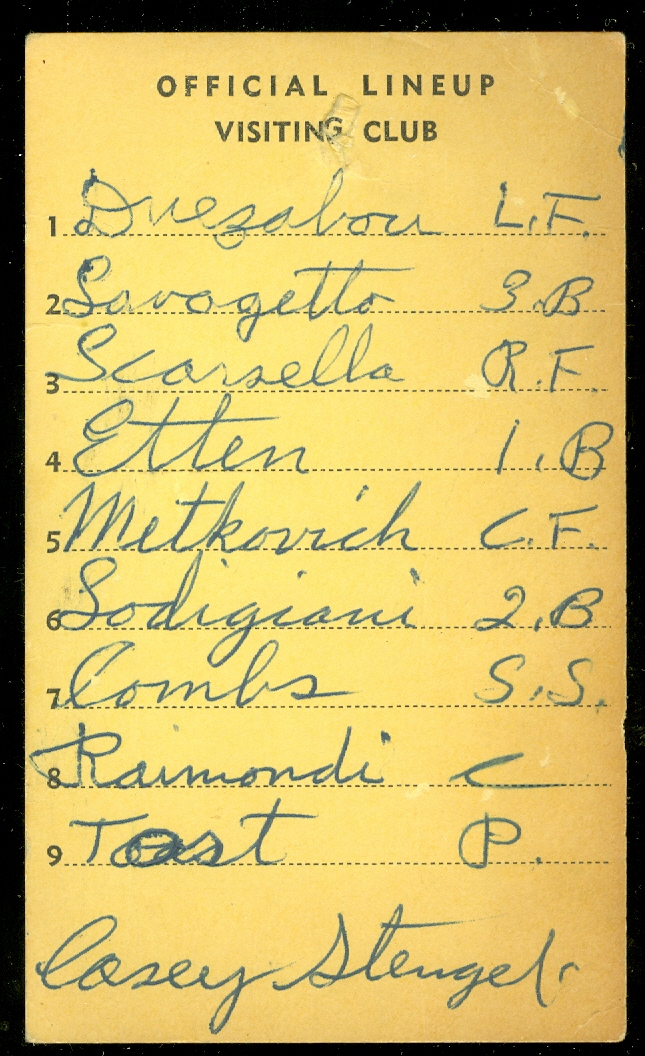 OFFICIAL LINEUP
VISITING CLUB
1 Duezabou L.F.
2 Lavagetto 3.B
3 Scarsella R.F.
4 Etten 1.B
5 Metkovich C.F.
6 Lodigiani 2.B
7 Combs S.S.
8 Raimondi C
9 Tost P.
Casey Stengel